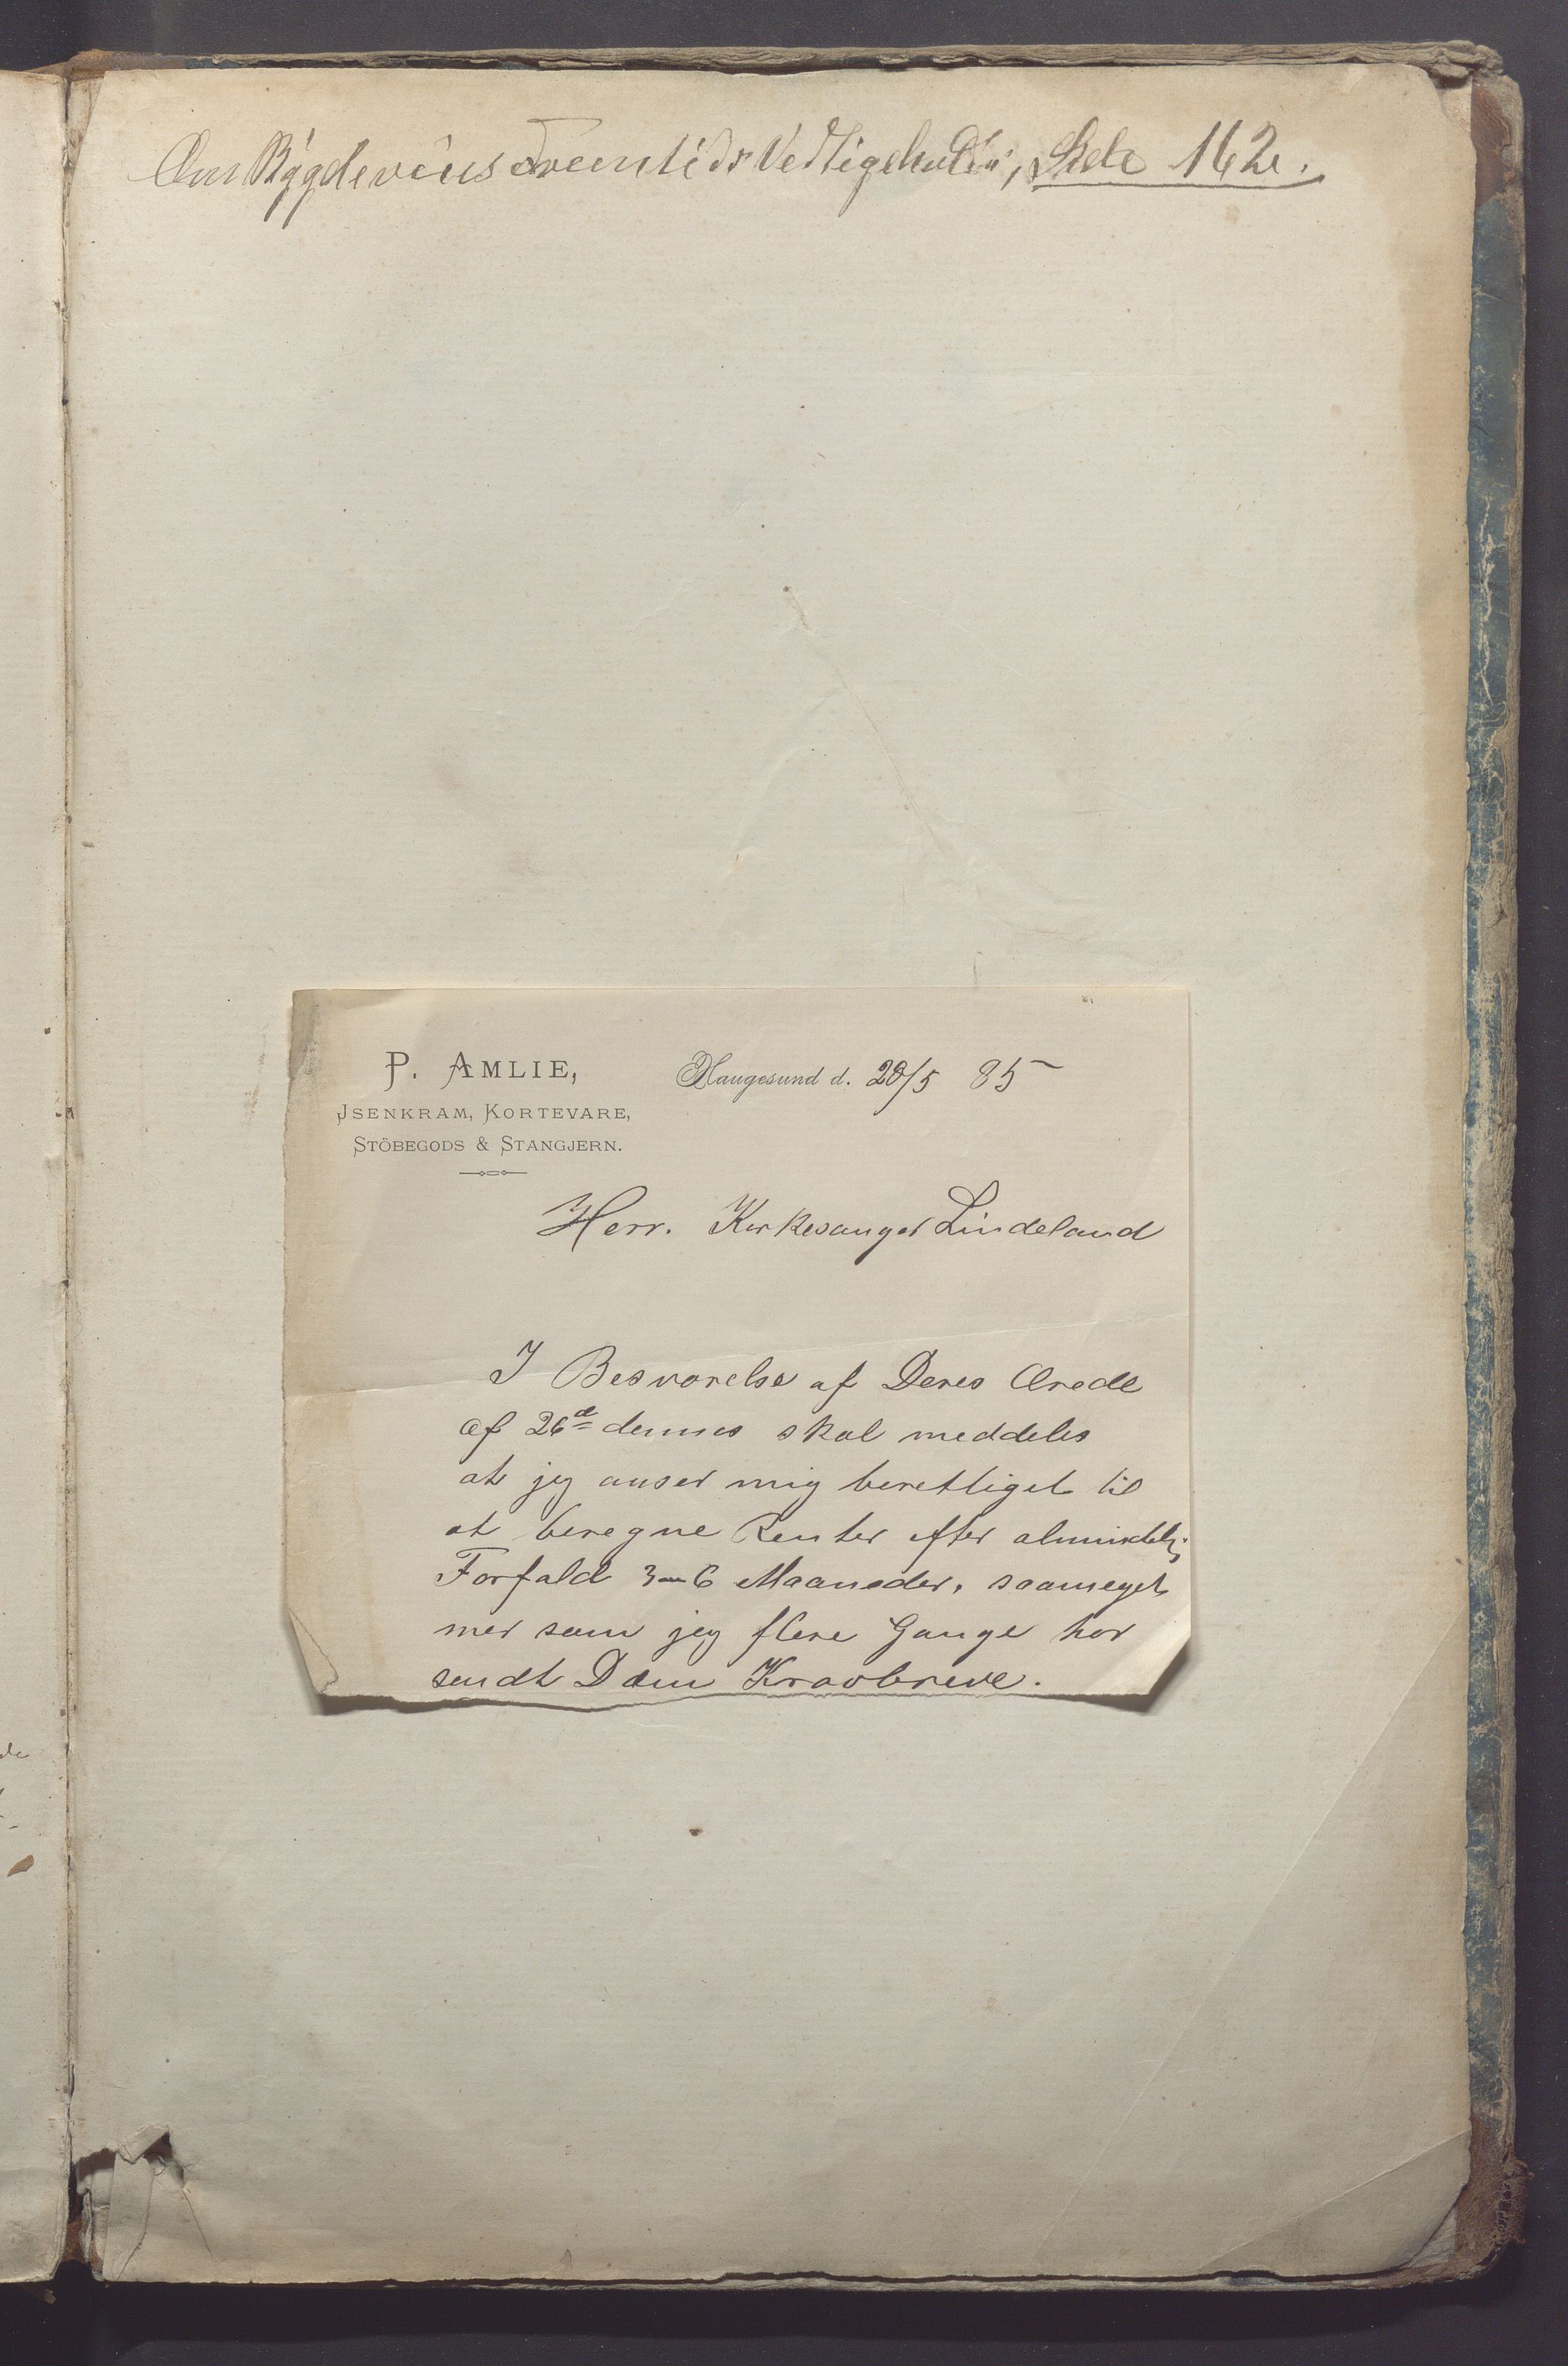 Om Bygdeveiens Fremtids Vedligehold, Side 162.
P. AMLIE,
JSENKRAM, KORTEVARE,
STÖBEGODS & STANGJERN.
Haugesund d. 28/5 85
Herr. Kirkesanger Lindeland
I Besvarelse af Deres Ærede
af 26d dennes skal meddeles
at jeg anser mig berettiget til
at beregne Renter efter almindelig
Forfald 3-6 Maaneder, saameget
mer som jeg flere Gange har
sendt Dem Kravbreve.